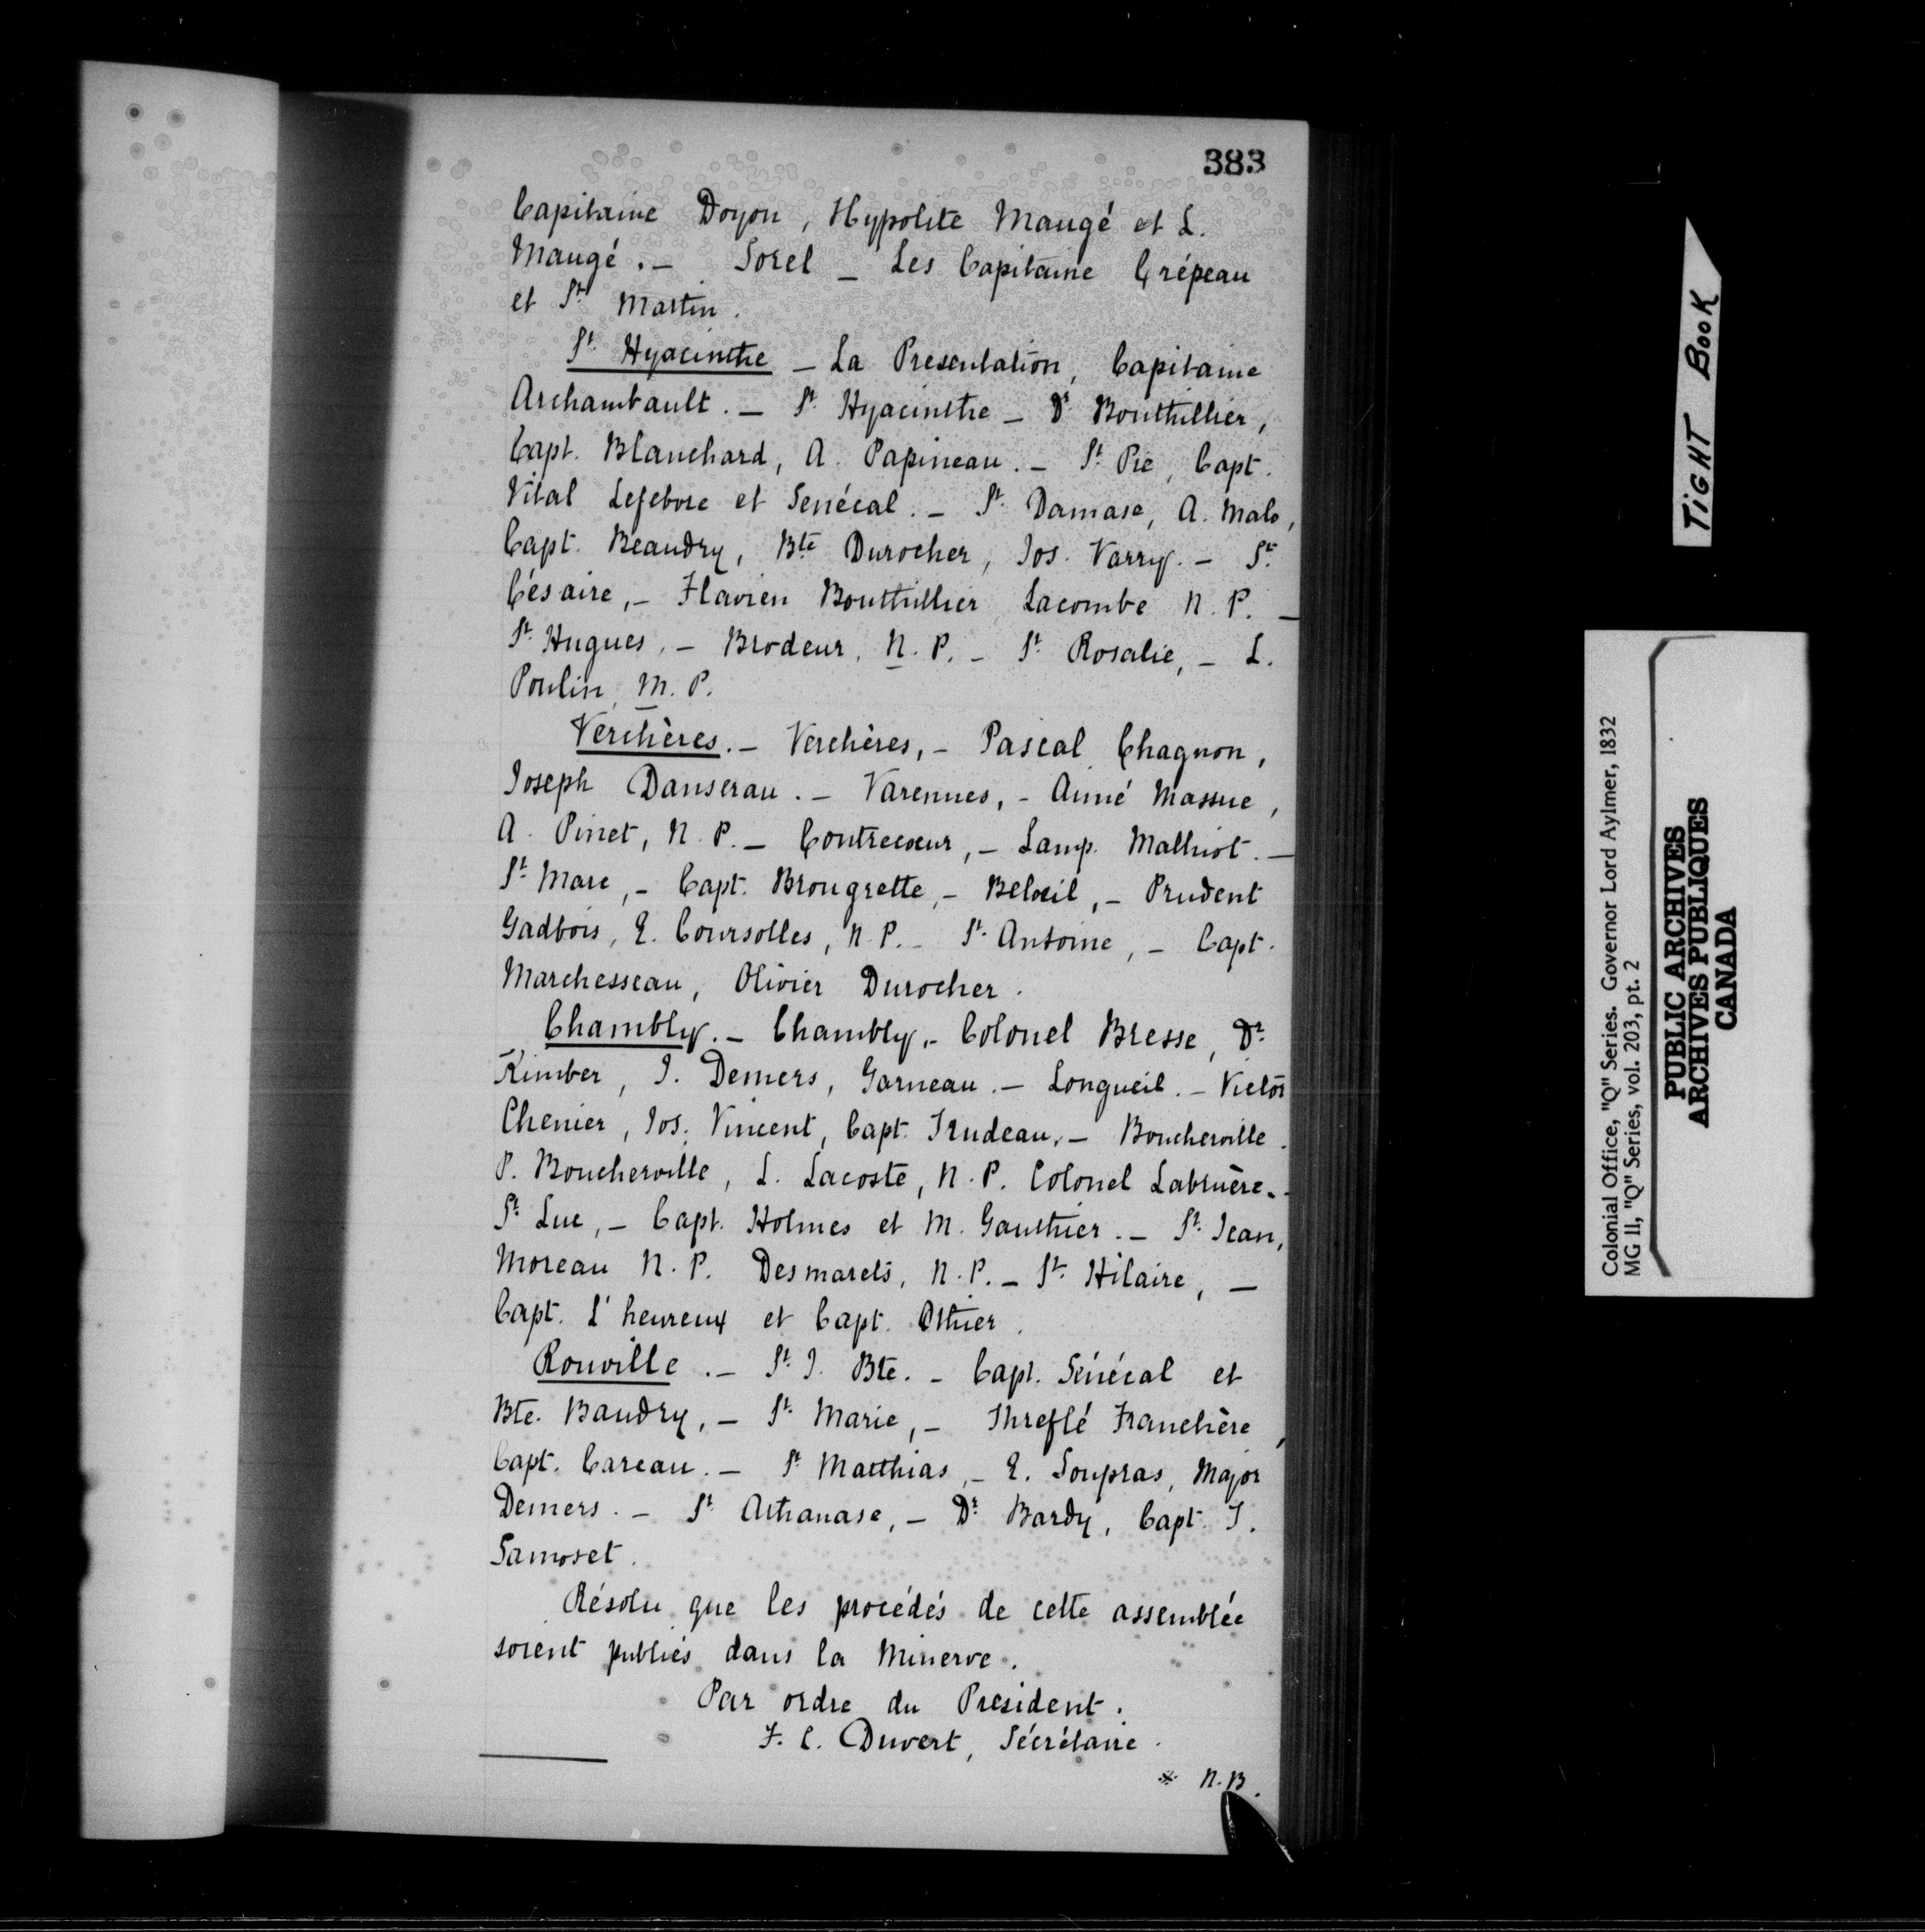 383
Capitaine Doyon, Hypolite Maugé et L.
Maugé. — Sorel — Les Capitaine Crépeau
et St Martin.
St. Hyacinthe — La Presentation, Capitaine
Archambault. — St. Hyacinthe — Dr. Bouthillier,
Capt. Blanchard, A. Papineau. — St. Pie, Capt.
Vital Lefebvre et Senécal. — St. Damase, A. Malo,
Capt. Beaudry, Bte Durocher, Jos. Varry. — St.
Césaire, — Flavien Bouthillier Lacombe N. P. —
St. Hugues, — Brodeur, N. P. — St. Rosalie, — L.
Poulin, M. P.
Verchères. — Verchères, — Pascal Chagnon,
Joseph Danserau. — Varennes, — Aimé Massue,
A. Pinet, N. P. — Contrecœur, — Lamp. Malhiot. —
St. Marc, — Capt. Brougrette, — Belœil, — Prudent
Gadbois, E. Coursolles, N. P. — St. Antoine, — Capt.
Marchesseau, Olivier Durocher.
Chambly. — Chambly, — Colonel Bresse, Dr.
Kimber, J. Demers, Garneau. — Longueil. — Victor
Chenier, Jos. Vincent, Capt. Trudeau, — Boucherville.
P. Boucherville, L. Lacoste, N. P. Colonel Labruère. —
St. Luc, — Capt. Holmes et M. Gauthier. — St. Jean,
Moreau N. P. Desmarets, N. P. — St. Hilaire, —
Capt. L'heureux et Capt. Othier.
Rouville. — St. J. Bte. — Capt. Sénécal et
Bte. Baudry, — St. Marie, — Threflé Franchère,
Capt. Careau. — St. Matthias, — E. Soupras, Major
Demers. — St. Athanase, — Dr. Bardy, Capt. J.
Samoset.
Résolu que les procédés de cette assemblée
soient publiés dans la Minerve.
Par ordre du President.
F. C. Duvert, Sécrétaire.
* N.B.
TiGHT BOOK
Colonial Office, "Q" Series. Governor Lord Aylmer, 1832
MG 11, "Q" Series, vol. 203, pt. 2
PUBLIC ARCHIVES
ARCHIVES PUBLIQUES
CANADA